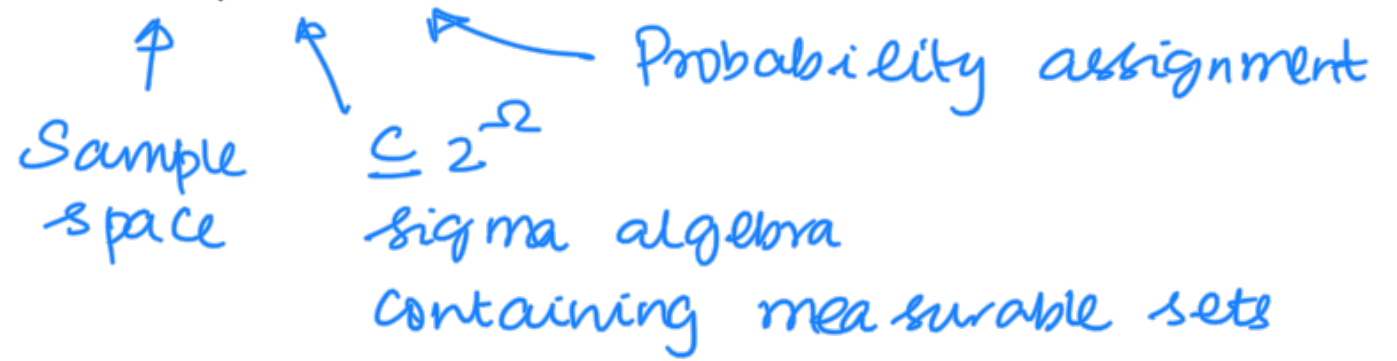 Probability assignment
Sample ⊆ 2^Ω
space sigma algebra
containing measurable sets